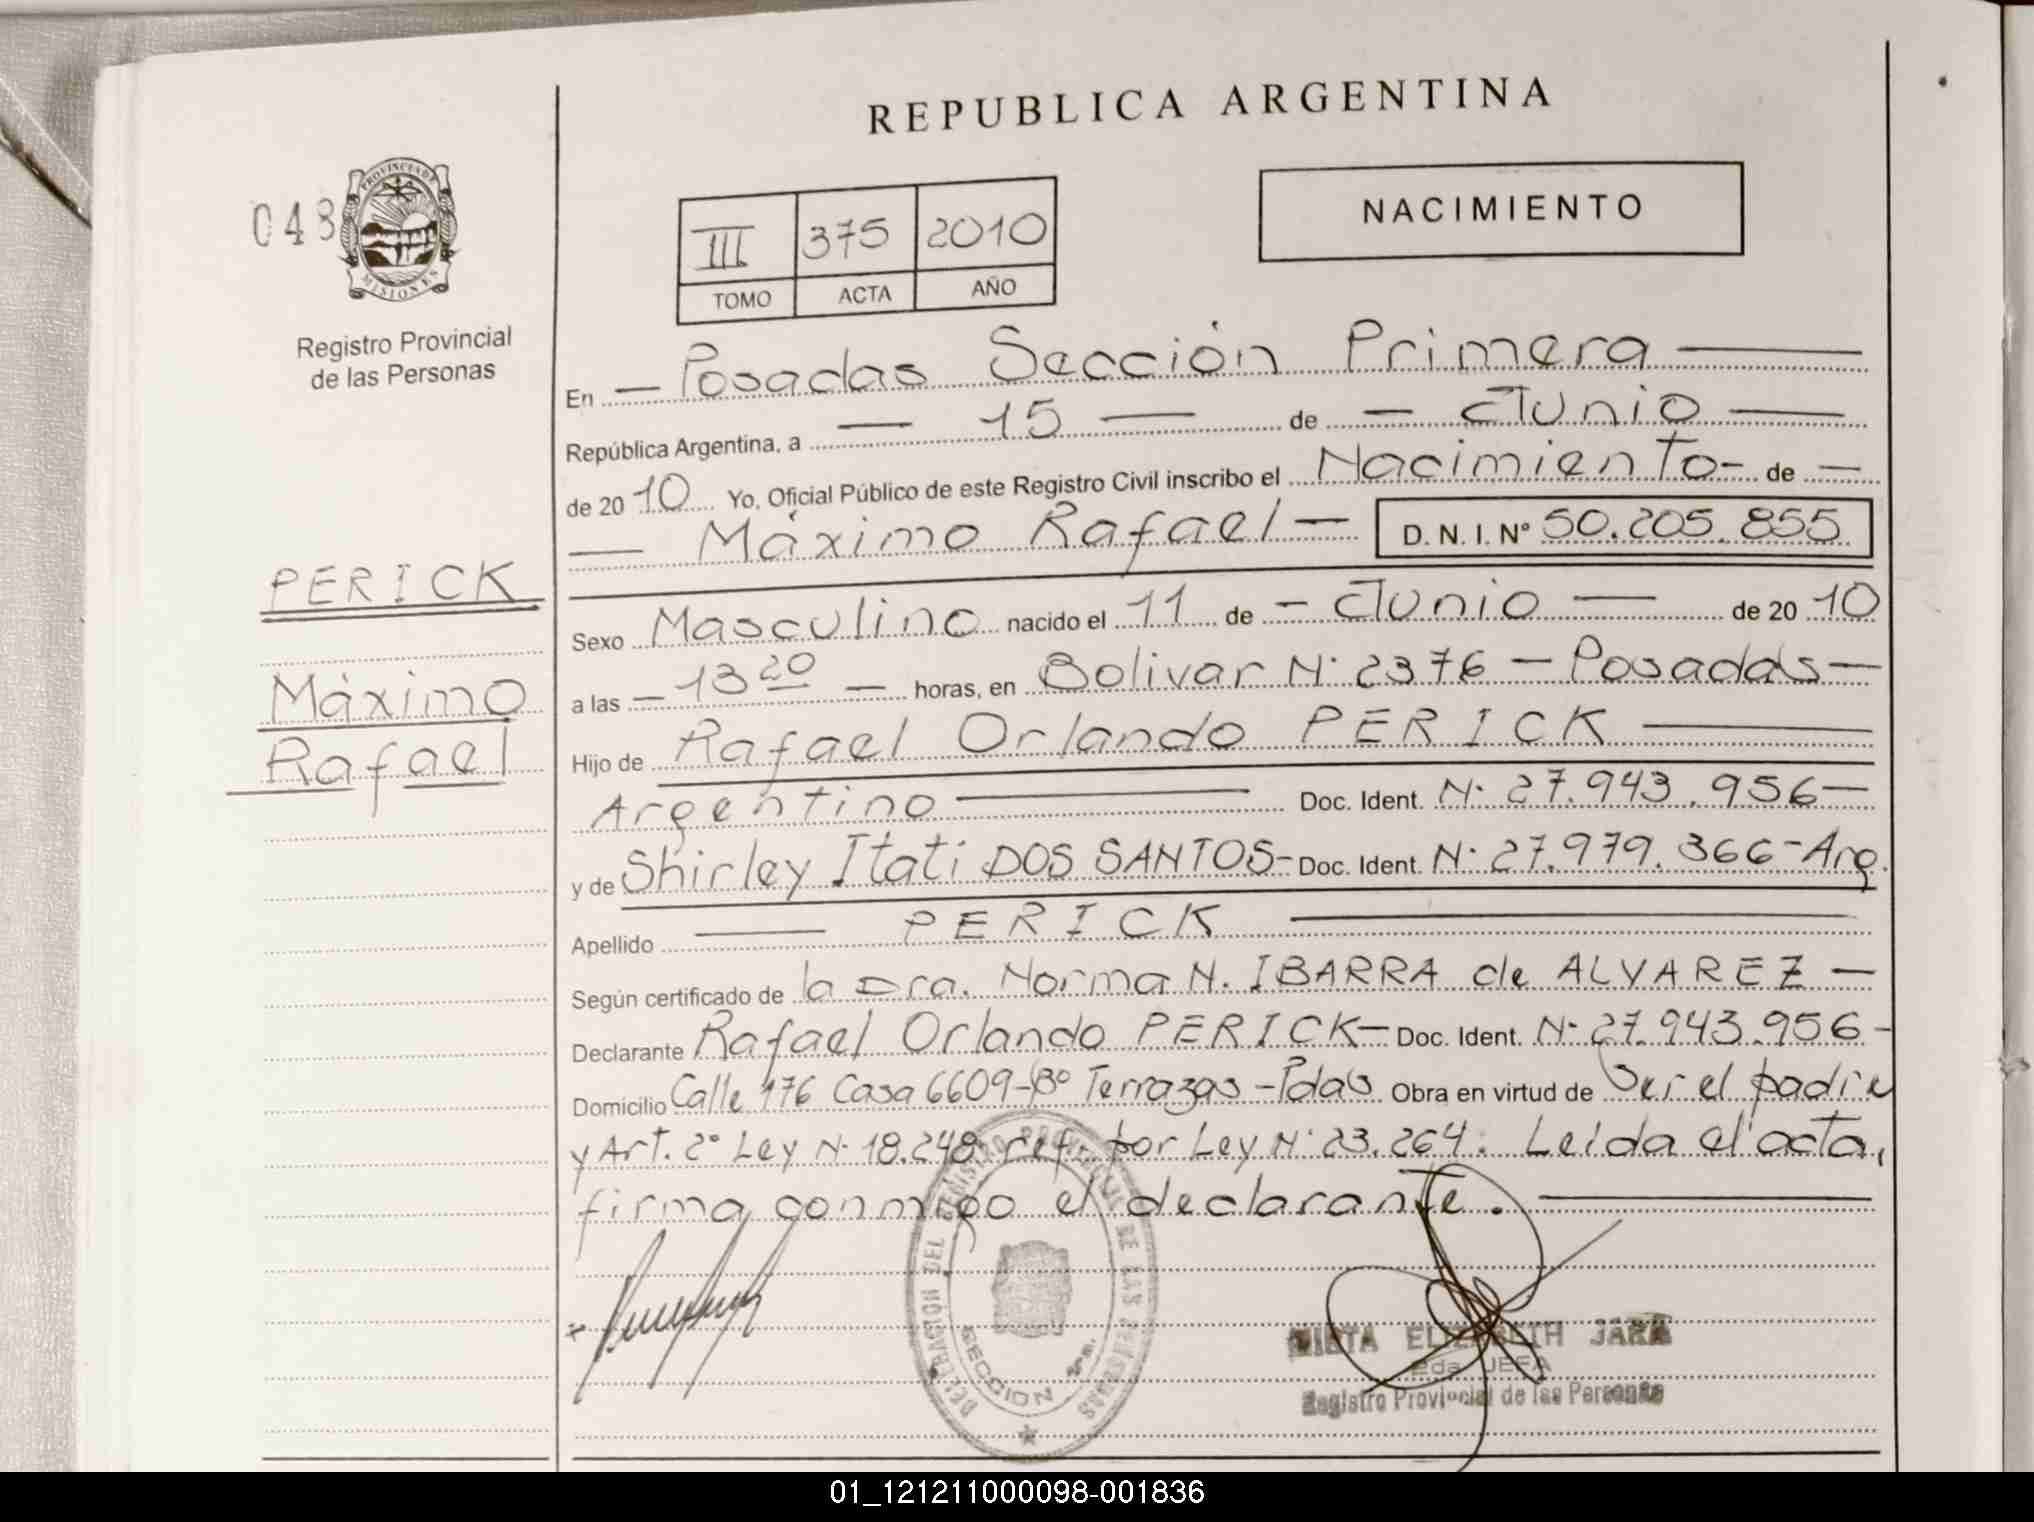 REPUBLICA ARGENTINA
048
PROVINCIA DE
MISIONES
Registro Provincial
de las Personas
III 375 2010
TOMO ACTA AÑO
NACIMIENTO
En — Posadas Sección Primera —
República Argentina, a — 15 — de — Junio —
de 2010 Yo, Oficial Público de este Registro Civil inscribo el Nacimiento- de —
— Máximo Rafael — D. N. I. Nº 50.205.855
PERICK
Máximo
Rafael
Sexo Masculino nacido el 11 de — Junio — de 2010
a las — 13 20 — horas, en Bolivar N· 2376 — Posadas —
Hijo de Rafael Orlando PERICK —
Argentino — Doc. Ident. N· 27.943.956 —
y de Shirley Itati DOS SANTOS- Doc. Ident. N· 27.979.366-Arg.
Apellido — PERICK —
Según certificado de la Dra. Norma N. IBARRA de ALVAREZ —
Declarante Rafael Orlando PERICK — Doc. Ident. N· 27.943.956-
Domicilio Calle 176 Casa 6609-Bº Terrazas -Pdas Obra en virtud de Ser el padre
y Art. 2º Ley N· 18.248 ref. por Ley N· 23.264. Leida el acta,
firma conmigo el declarante. —
DEL REGISTRO PROVINCIAL DE LAS PERSONAS
SECCION
ELIZABETH JARA
2da JEFA
Registro Provincial de las Personas
01_121211000098-001836